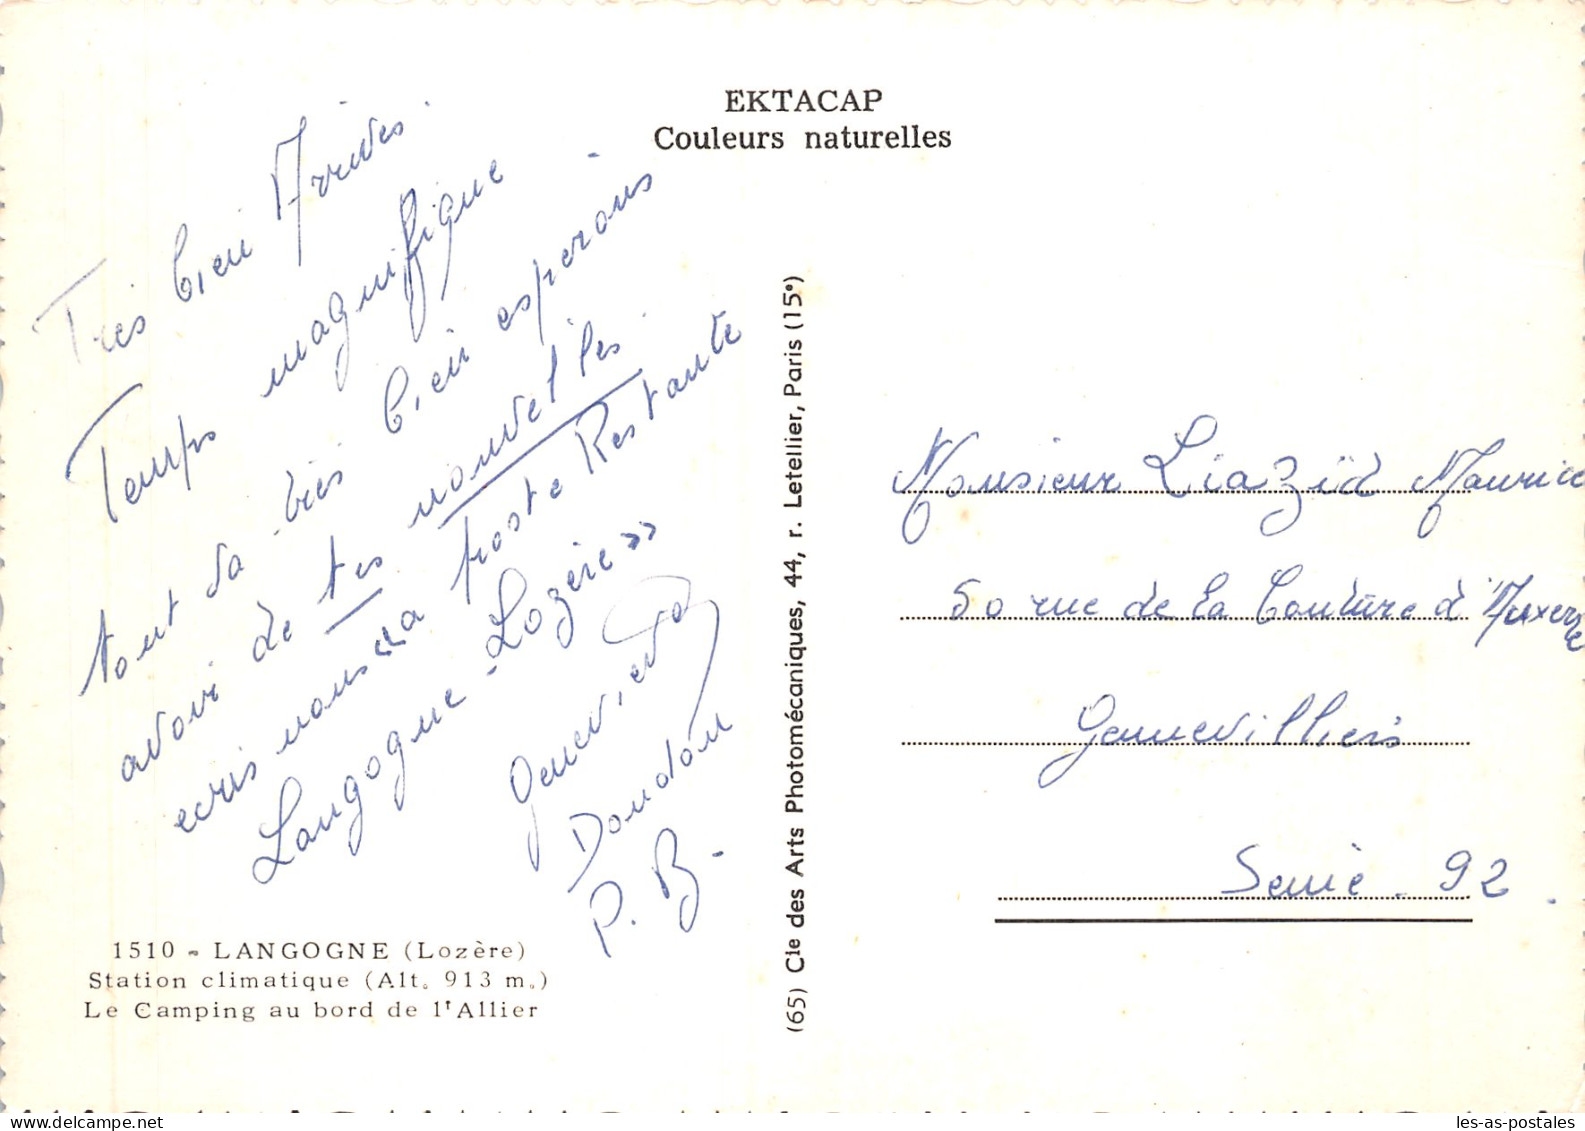 EKTACAP
Couleurs naturelles
Très bien Arrivés.
Temps magnifique
tout va très bien espérons
avoir de tes nouvelles.
ecris nous "a poste Restante
Langogne - Lozère »
Geneviève
Doudou
P. B.
1510 - LANGOGNE (Lozère)
Station climatique (Alt. 913 m.)
Le Camping au bord de l'Allier
(65) Cie des Arts Photomécaniques, 44, r. Letellier, Paris (15e)
Monsieur Liazïd Maurice
50 rue de la Couture d'Auxerre
Gennevilliers
Seine - 92.
les-as-postales.com